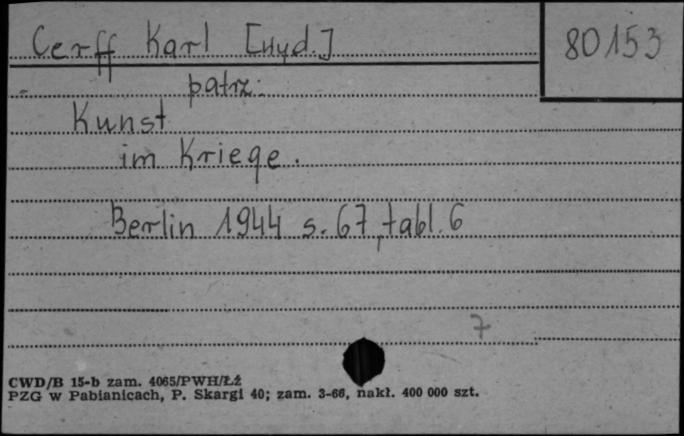 Cerff Karl [Wyd.]
80153
patrz:
Kunst
im Kriege.
Berlin 1944 s. 67, tabl. 6
7
CWD/B 15-b zam. 4065/PWH/ŁŻ
PZG w Pabianicach, P. Skargi 40; zam. 3-66, nakł. 400 000 szt.